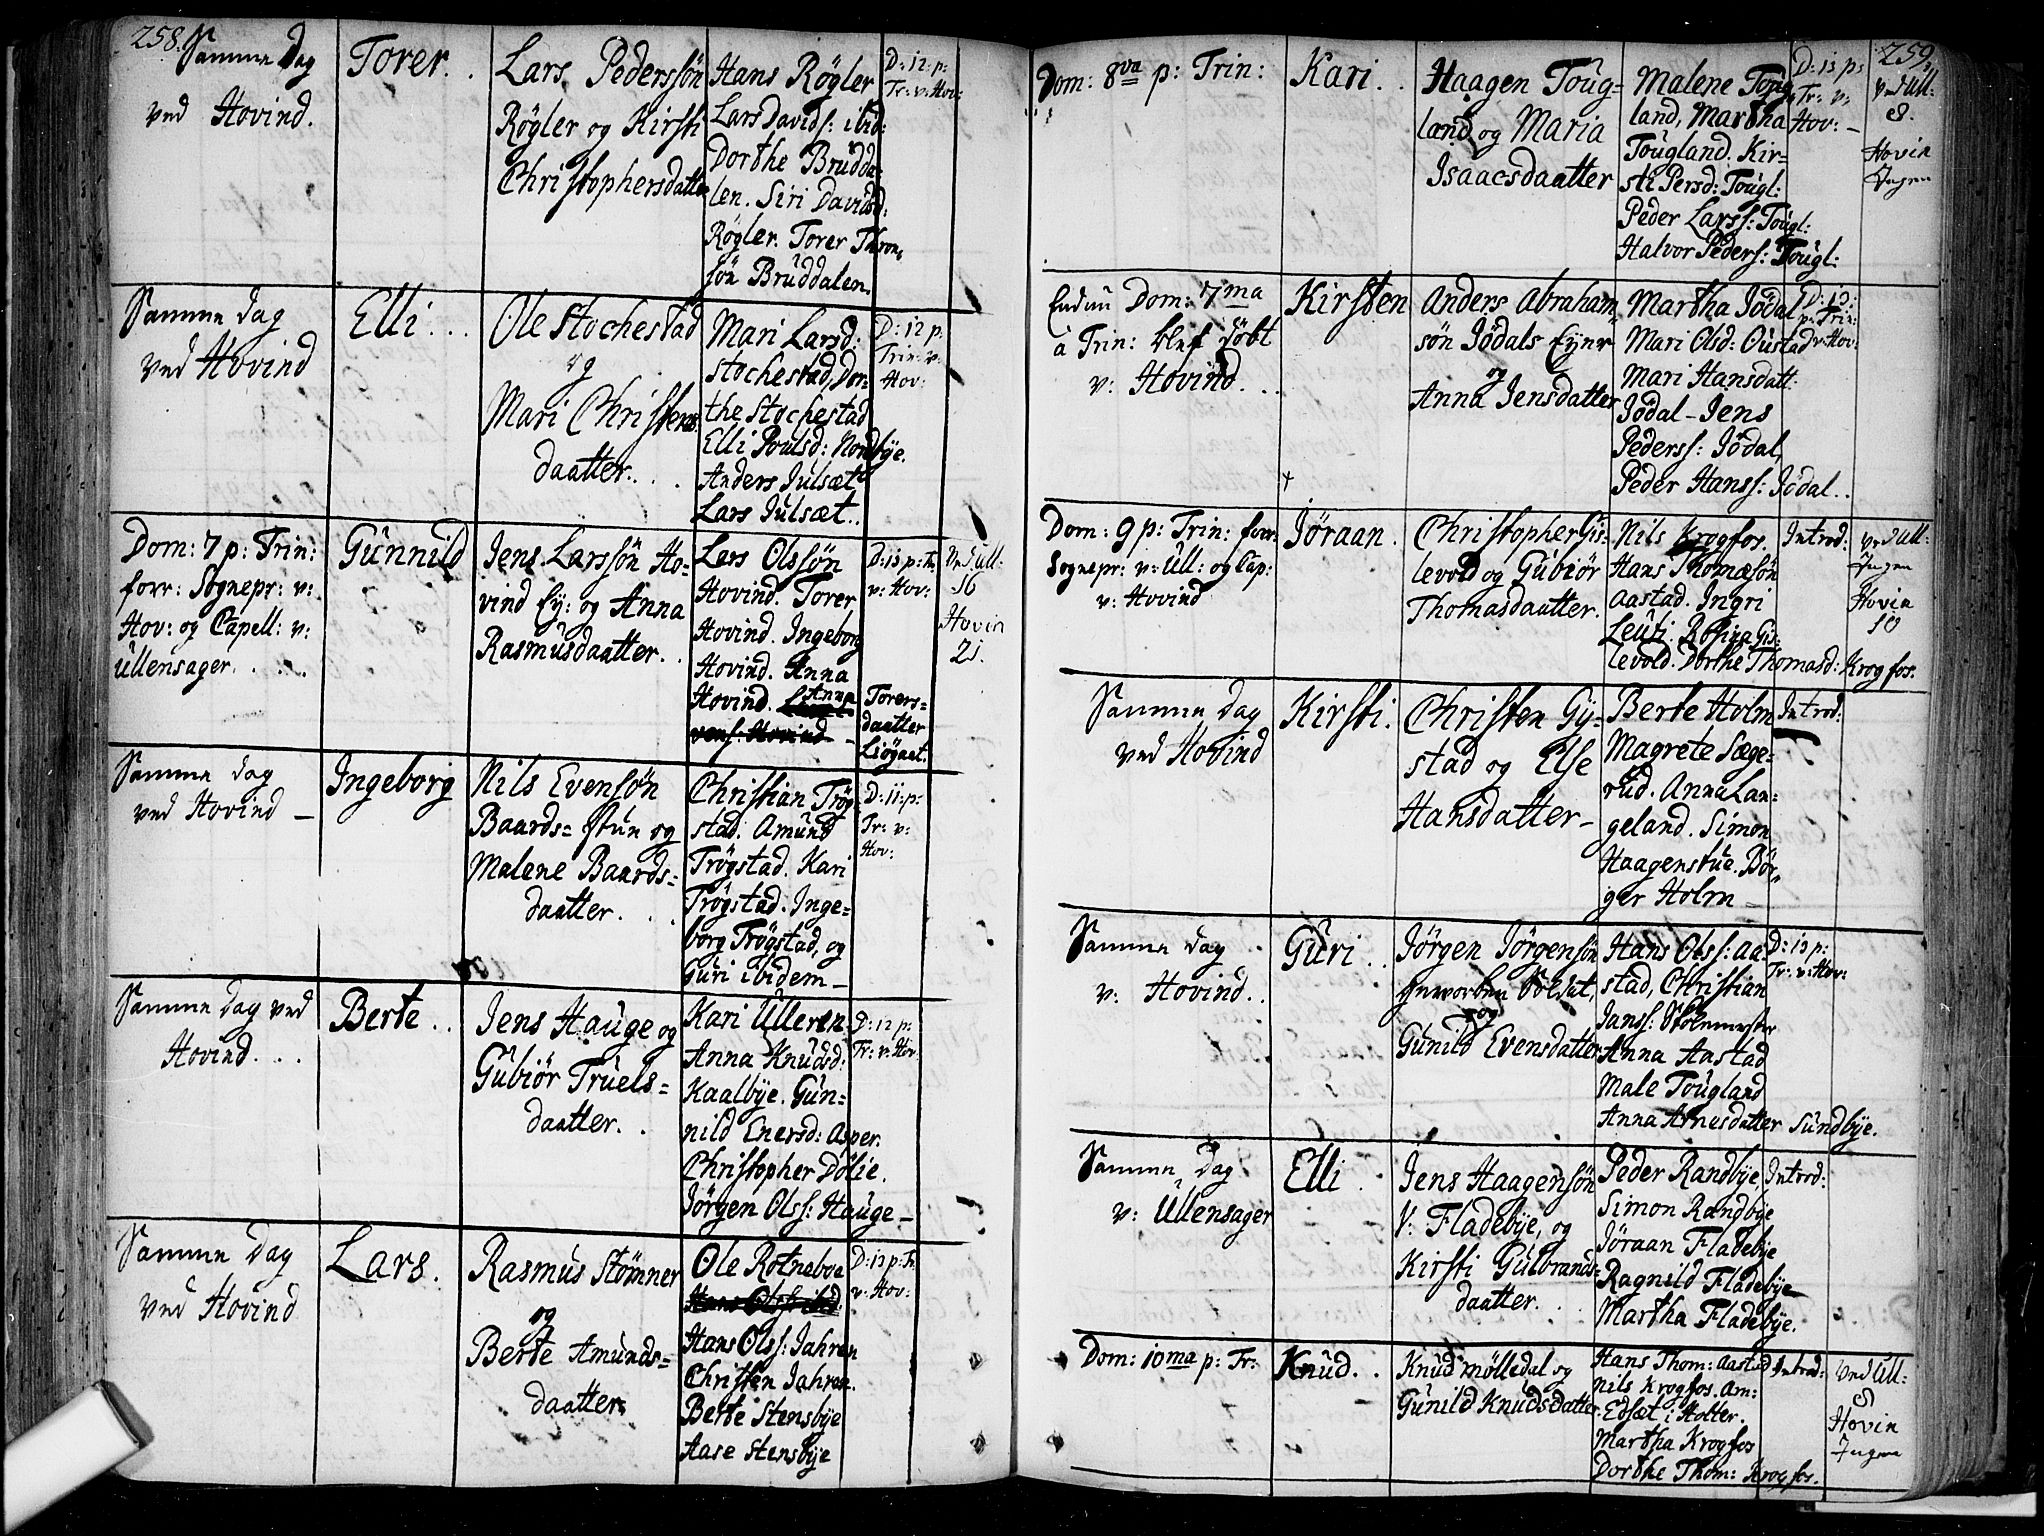 258.
Samme Dag
ved Hovind.
Torer.
Lars Pederssön
Røgler og Kirsti
Christophersdatter
Hans Røgler
Lars Davids: ibid:
Dorthe Brudda-
len. Siri Davidsd:
Røgler. Torer Thron,
sön Bruddalen.
D: 12. p:
Tr: v: Hov:
Samme dag
ved Hovind
Elli...
Ole Stochestad
og
Mari Christens
daatter...
Mari Larsd:
Stochestad, Dor-
the Stochestad
Elli Poulsd: Nordbÿe.
Anders Julsæt
Lars Julsæt..
D: 12 p:
Trin: v:
Hov:
Dom: 7 p: Trin:
forr: Sognepr: v:
Hov: og Capell: v:
Ullensager....
Gunnild
Jens Larssön Ho-
vind Ey: og Anna
Rasmusdaatter..
Lars Olssön
Hovind. Torer
Hovind. Ingeborg
Hovind. Anna
Hovind. Anna
Torers-
daatter
Liögaat.
D: 13 p: Tr
v: Hov:
Ved Ull:
16
Hovin
21.
Samme dag
ved Hovind –
Ingeborg
Nils Evensøn
Baards= stun og
Malene Baards=
daatter...
Christian Trøg-
stad. Amund
Trøgstad. Kari
Trøgstad. Inge=
borg Trøgstad, og
Guri ibidem –
D: 11: p:
Tr: v:
Hov:
Samme dag ved
Hovind...
Berte..
Jens Hauge og
Gubiør Truels=
daatter..
Kari Ulleren
Anna Knudsd:
Kaalbÿe. Gun=
nild Enersd: Asper.
Christopher Dölie.
Jørgen Olss: Hauge –
D: 12 p:
Tr: v: Hov:
Samme dag
ved Hovind
Lars.
Rasmus Stømner
og
Berte Amunds=
daatter
Ole Rotneboe
Hans Olss: Jahren
Christen Jahren.
Berte Stensbÿe
Aase Stensbÿe
D: 13 p: Tr
v: Hov:
259.
Dom: 8va p: Trin:
Kari..
Haagen Toug=
land og Maria
Isaacsdaatter
Malene Toug
land, Martha
Tougland. Kir=
sti Persd: Tougl:
Peder Larss: Tougl:
Halvor Peders: Tougl:
D: 13 p:
Tr: v:
Hov: –
Ved Ull:
8.
Hovin
Ingen
Endnu Dom: 7ma
a Trin: blef døbt
v: Hovind...
Kirsten
Anders Abraham,
sön Jödals Eyer
og
Anna Jensdatter
Martha Jödal
Mari Olsd: Oustad
Mari Hansdatt:
Jödal – Jens
Pederss: Jödal,
Peder Hanss: Jödal..
D: 13:
p: Trin:
v: Hov:
Dom: 9 p: Trin: forr:
Sognepr: v: Ull: og Cap:
v: Hovind
Jøraan.
Christopher Gis-
levold og Gubiør
Thomasdaatter.
Nils Krogfos.
Hans Thomæsøn
Aastad. Ingri
Leuti. Rosina Gis-
levold. Dorthe Thomasd: Krogfos.
Introd:
ved Ull:
Ingen
Hovin
10
Samme dag
ved Hovind
Kirsti.
Christen Gÿ-
stad og Else
Hansdatter –
Berte Holm
Magrete Sæge-
rud. Anna Lan=
geland. Simon
Haagenstue. Bör,
ger Holm –
Introd:
Samme dag
v: Hovind..
Guri..
Jörgen Jörgensön
hverv­ben Soldat,
og
Gunild Evensdatter
Hans Olss: Aa
stad, Christian
Janss: Skolemester
Anna Aastad
Male Tougland
Anna Arnesdatter Sundbÿe.
D: 13 p:
Tr: v: Hov:
Samme dag
v: Ullensager
Elli.
Jens Haagensön
V: Fladebÿe, og
Kirsti Gulbrands=
daatter..
Peder Randbÿe
Simon Randbÿe
Jöraan Fladebÿe
Ragnild Fladebÿe
Martha Fladebÿe.
Introd:
Dom: 10ma p: Tr:
Knud..
Knud Mølledal og
Gunild Knudsdatter.
Hans Thom: Aastad
Nils Krogfos. Am:
Edsæt i Holter.
Martha Krogfos
Dorthe Thom: Krogfos.
Introd:
ved Ull:
8
Hovin
Ingen